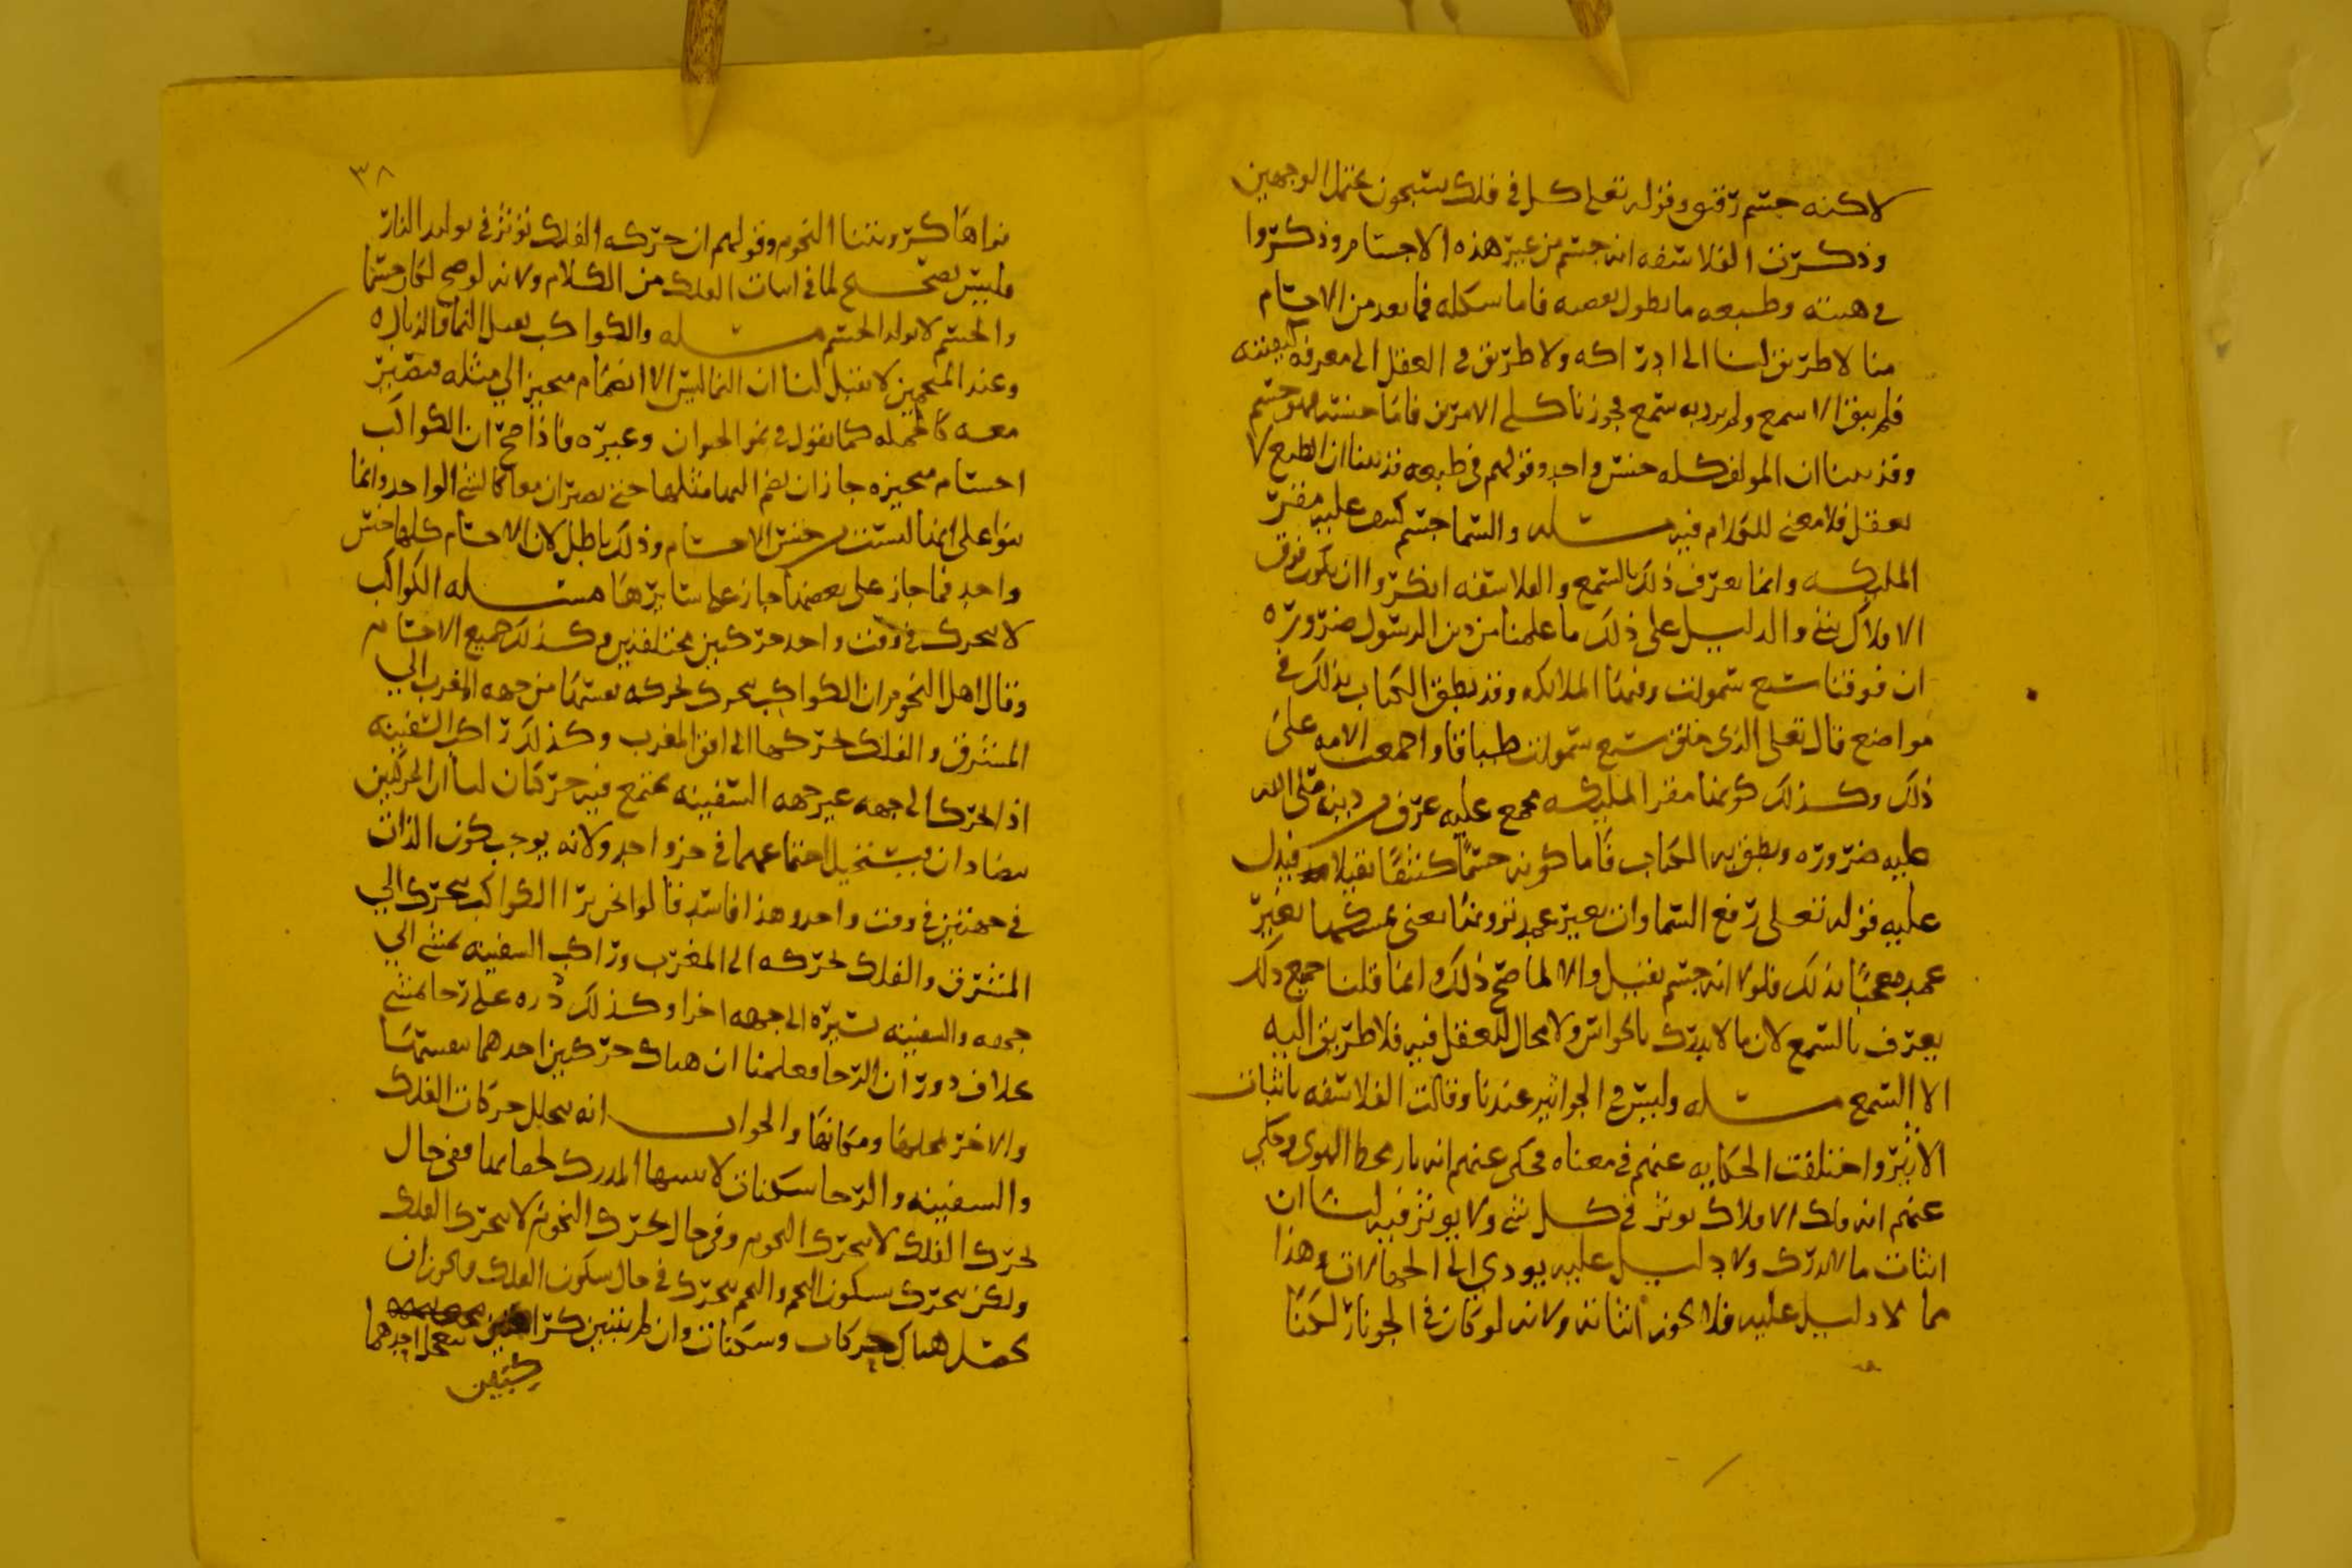 لاكنه جسم رقيق وقوله تعلى كل في فلك يسبحون يحتمل الوجهين
وذكرت الفلاسفه انه جسم من غير هذه الاجسام وذكروا
في هيئته وطبيعه ما يطول بعضه فاما شكله فما بعد من الاجسام
منا لا طريق لنا الى ادراكه ولا طريق في العقل الى معرفة كيفيته
فلم يبق الا السمع ولم يرد به سمع فجوزنا كلى الامرين فاما جنسه فهو جسم
وقد بينا ان المولف كله جنس واحد وقولهم في طبعه قد بينا ان الطبع لا
يعقل فلا معنى للكلام فيه مسله والسما جسم كثيف عليه مقر
المليكه وانما يعرف ذلك بالسمع والفلاسفه انكروا ان يكون فوق
الافلاك شي والدليل على ذلك ما علمنا من دين الرسول ضروره
ان فوقنا سبع سموات وفيها الملائكه وقد نطق الكتاب بذلك في
مواضع قال تعلى الذي خلق سبع سموات طباقا واجمعت الامه على
ذلك وكذلك كونها مقر المليكه مجمع عليه عرف من دينه صلى الله
عليه ضروره ونطق به الكتاب فاما كونه جسما كثيفا ثقيلا فيدل
عليه قوله تعلى رفع السماوات بغير عمد ترونها يعني يمسكها بغير
عمد معجبا بذلك فلولا انه جسم ثقيل والا لما صح ذلك وانما قلنا جميع ذلك
يعرف بالسمع لان ما لا يدرك بالحواس ولا مجال للعقل فيه فلا طريق اليه
الا السمع مسله وليس في الجو اثير عندنا وقالت الفلاسفه باثبات
الاثير واختلفت الحكايه عنهم في معناه فحكى عنهم انه نار محيط الهوى وحكي
عنهم انه فلك الافلاك يوثر في كل شي ولا يوثر فيه لنا ان
اثبات ما لا يدرك ولا دليل عليه يودي الى الجهالات وهذا
مما لا دليل عليه فلا يجوز اثباته ولانه لو كان في الجو نار لكنا
٣٨
نراها كرويتنا النجوم وقولهم ان حركه الفلك توثر في تولد النار
فليس بصحيح لما في اثبات الفلك من الكلام ولانه لو صح لكان جسما
والجسم لا يولد الجسم مسله والكواكب تقبل النما والزياده
وعند المنجمين لا تقبل لنا ان النما ليس الا انضمام متحيز الي مثله فتصير
معه كالجمله كما نقول في نمو الحيوان وغيره فاذا صح ان الكواكب
اجسام متحيزه جاز ان يضم اليها مثلها حتى يصيران معا كالشي الواحد وانما
بنوا على انها ليست من جنس الاجسام وذلك باطل لان الاجسام كلها جنس
واحد فما جاز على بعضها جاز على سايرها مسله الكواكب
لا تتحرك في وقت واحد حركتين مختلفتين وكذلك جميع الاجسام
وقال اهل النجوم ان الكواكب تتحرك بحركه نفسها من جهه المغرب الي
المشرق والفلك يحركها الى افق المغرب وكذلك راكب السفينه
اذا تحرك الى جهه غير جهه السفينه يجتمع فيه حركتان لنا ان الحركتين
يتضادان فيستحيل اجتماعهما في جزو احد ولانه يوجب كون الذات
في جهتين في وقت واحد وهذا فاسد قالوا نحن نرا الكواكب تتحرك الي
المشرق والفلك يحركه الى المغرب وراكب السفينه يمشي الي
جهه والسفينه تسيره الى جهه اخرا وكذلك ذره على رحا تمشي
بخلاف دوران الرحا فعلمنا ان هناك حركتين احدهما بنفسها
والاخر لمحلها ومكانها والجواب انه يتخلل حركات الفلك
والسفينه والرحا سكنات لا يتبينها المدرك لخفايها ففي حال
تحرك الفلك لا يتحرك النجوم وفي حال تحرك النجوم لا يتحرك الفلك
ولكن يتحرك بسكون النجم والنجم يتحرك في حال سكون الفلك فيجوز ان
يحصل هناك حركات وسكنات وان لم يتبين كرا احدهما
كتبين